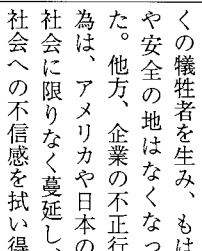 くの犠牲者を生み、もは
や安全の地はなくなっ
た。他方、企業の不正行
為は、アメリカや日本の
社会に限りなく蔓延し、
社会への不信感を拭い得